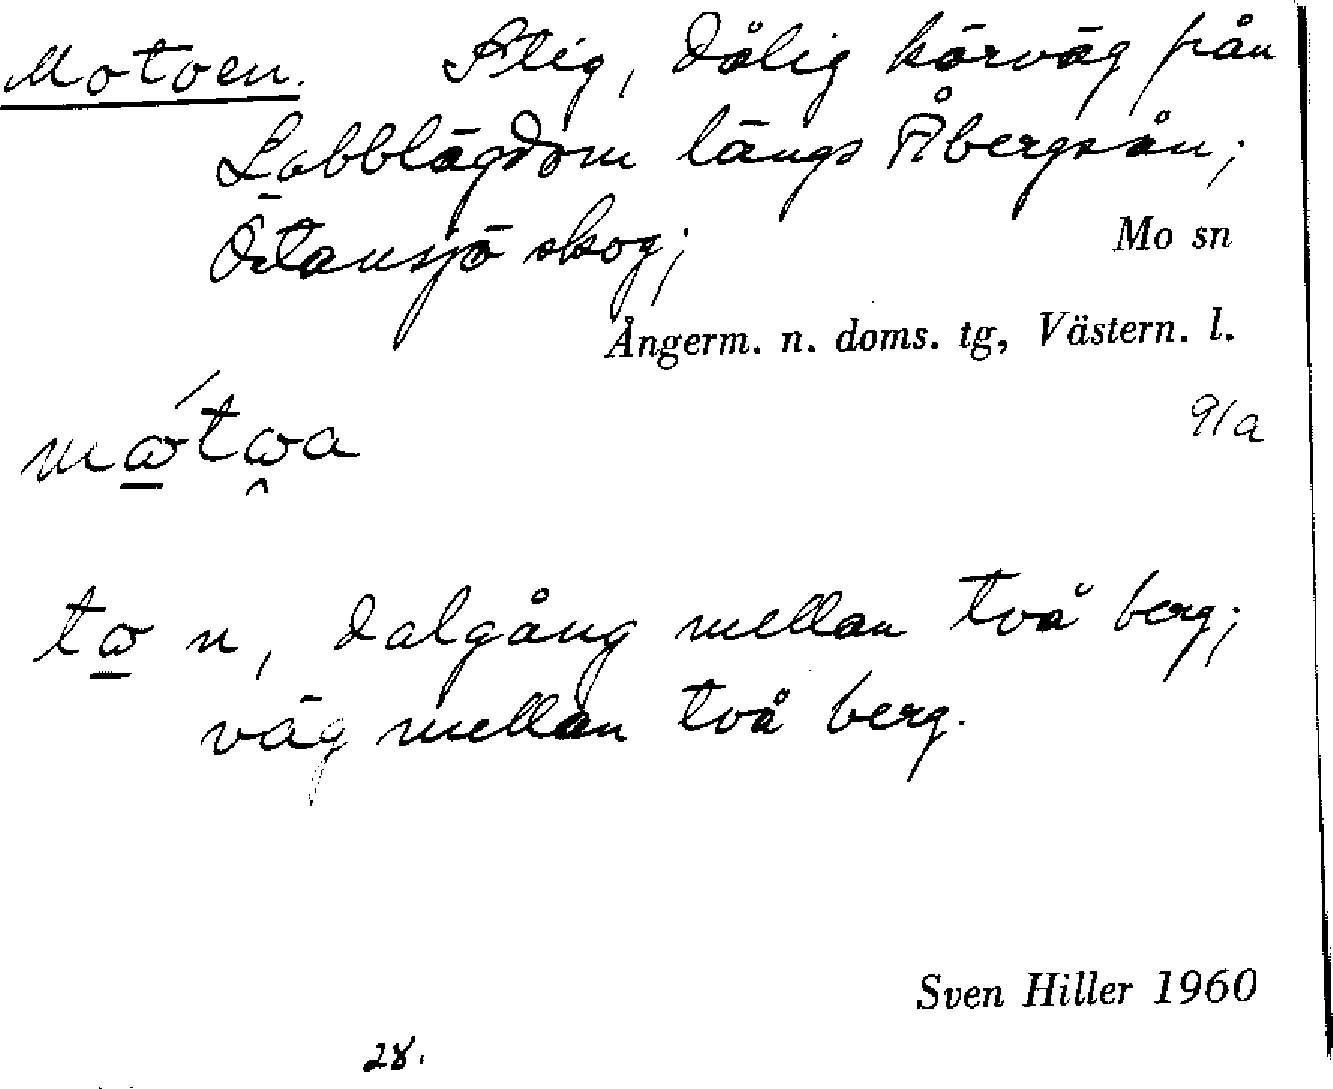 Motoen. Stig, dålig körväg från
Labblägdom längs Åbergsån;
Östansjö skog; Mo sn
Ångerm. n. doms. tg, Västern. l.
91a
mώ̲tω̯a
tω̲ n, dalgång mellan två berg;
väg mellan två berg.
Sven Hiller 1960
28.